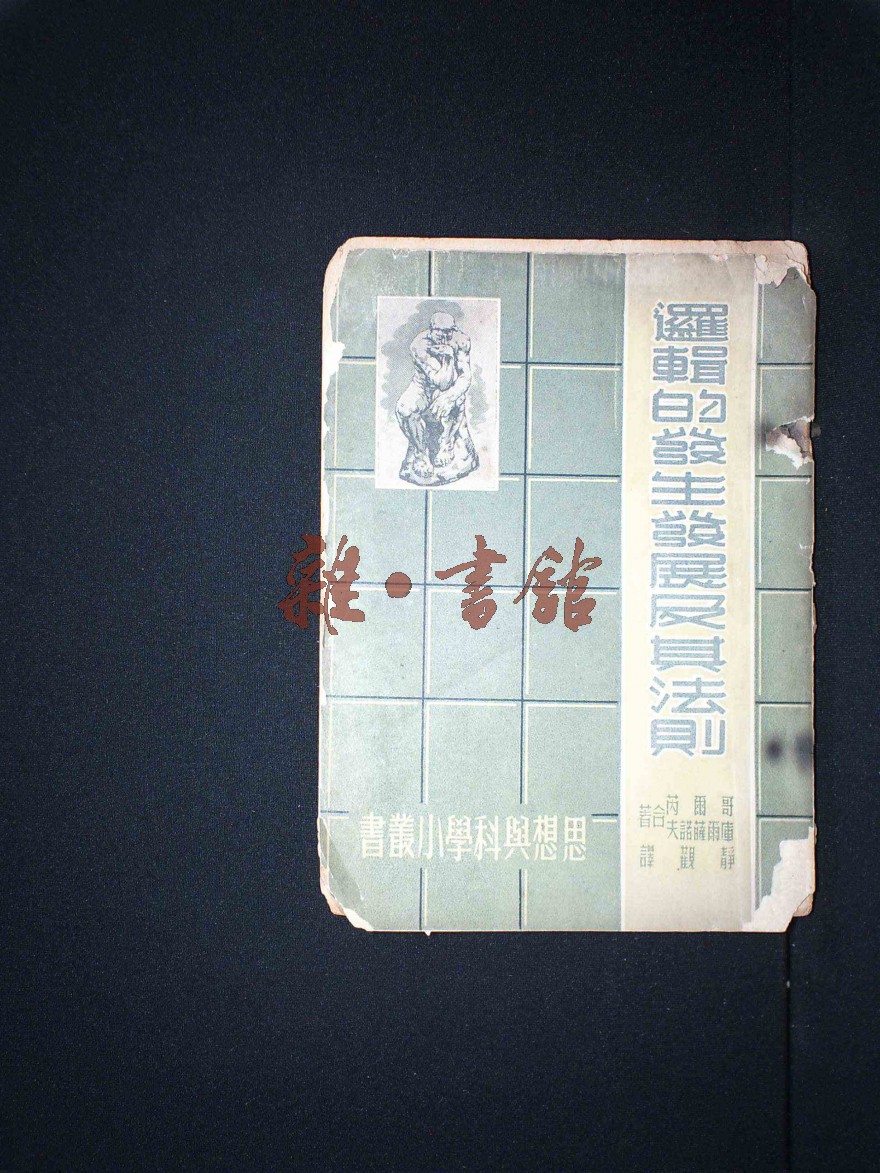 邏輯的發生發展及其法則
哥爾芮
庫爾薩諾夫
合著
靜觀譯
思想與科學小叢書
雜·書館